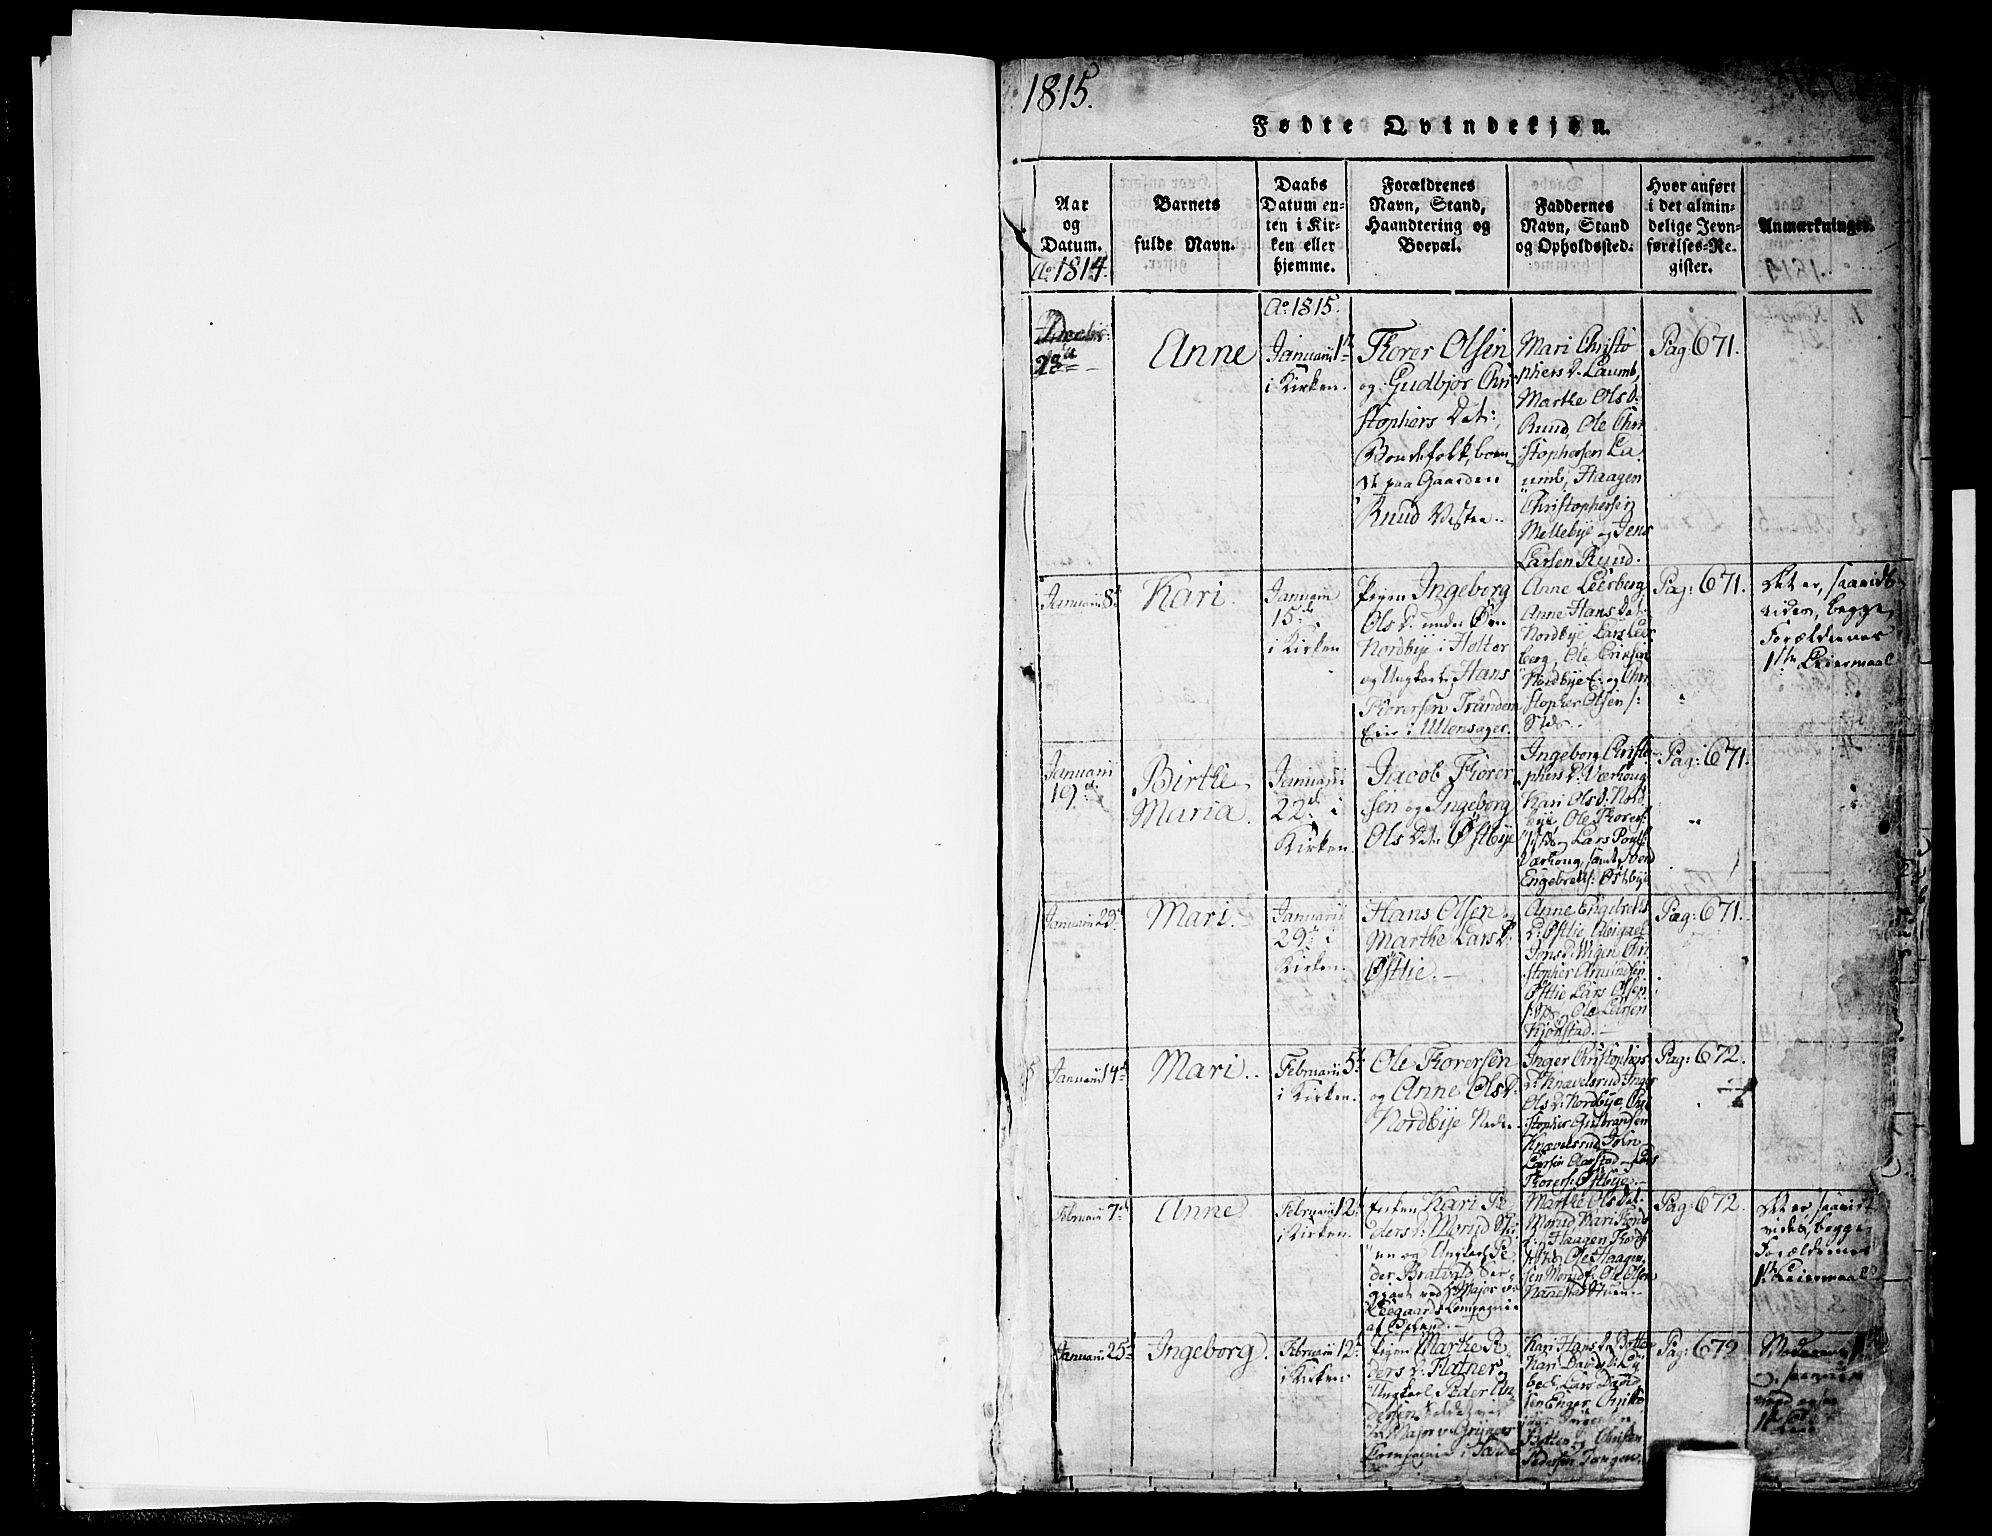 1815.
Fødte Qvindekjøn.
Aar
og
Datum.
Ao 1814.
Barnets
fulde Navn.
Daabs
Datum en-
ten i Kir-
ken eller
hjemme.
Forældrenes
Navn, Stand,
Haandtering og
Boepæl.
Faddernes
Navn, Stand
og Opholdssted.
Hvor anført
i det almin-
delige Jevn-
førelses-Re-
gister.
Anmærkninger.
Anne
Ao 1815.
Januarii 1te
i Kirken.
Thorer Olsen
og Gudbjør Chri
stophers Dat:,
Bondefolk, boen
de paa Gaarden
Ruud Vestre.
Mari Christo
phers D. Laumb,
Marthe Ols D:
Ruud, Ole Chri
stophersen La
umb, Haagen
Christophersen
Mellebye og Jens
Larsen Ruud.
Pag: 671.
Januarii 8de
Kari.
Januarii
15de
i Kirken
Pigen Ingeborg
Ols D. under Øvre
Nordbye i Holter
og Ungkarl Hans
Thorersen Tranden
Eier i Ullensager.
Anne Leerberg
Anne Hans Dat:
Nordbye Lars Leer
berg, Ole Eriksen
Nordbye E: og Chri
stopher Olsen
Pag: 671.
Det er, saavidt
vides, begge
Forældrenes
1ste Leiermaal
Januarii
19de
Birthe
Maria.
Januarii
22de i
Kirken.
Jacob Thorer
sen og Ingeborg
Ols Dat: Østbye
Ingeborg Christo-
phers D: Værhoug
Kari Ols D: Nord
bye, Ole Thorers:
Lars
Værhoug, samt
Engebrets: Østbye
Pag: 671.
Januarii 29de
Mari.
Januarii
29de i
Kirken.
Hans Olsen og
Marthe Lars D:
Østlie.
Anne Engebrets
D: Østlie Abigael
Jons D: Wigen Chri
stopher Amundsen
Østlie Lars Olsen
Ole Larsen
Kjonstad.
Pag: 671.
Januarii 14de
Mari.
Februarii 5te
i Kirken.
Ole Thorersen
og Anne Ols D:
Nordbye Nedre
Inger Christophers
D: Knævelsrud Inger
Ols D: Nordbye, Chri
stopher Gulbransen
Knævelsrud John
Larsen Aarstad
Thorers: Østbye.
Pag: 672.
Februarii 7de
Anne
Februarii 12te
i Kirken.
Pigen Kari Pe
ders D: Morud
og Ungkarl Pe
der Bratvold Ser
gjant ved Major
Leegaards Compagnie
Marthe Ols Dat:
Morud Kari Thords
D: Haagen Thords
Ole Haagen
sen Morud Ole Olsen
Pag: 672.
Det er saavidt
vides, begge
Forældrenes
1ste Leiermaal
Januarii 25de
Ingeborg.
Februarii 12te
i Kirken
Pigen Marthe Pe
ders D: Flatner og
Ungkarl Peder An
dersen Soldat ved
Major
Compagnie
Kari Hans D
Kari Davids D: Ly
beck Lars David
sen Enger
Pedersen Tangen.
Pag: 672